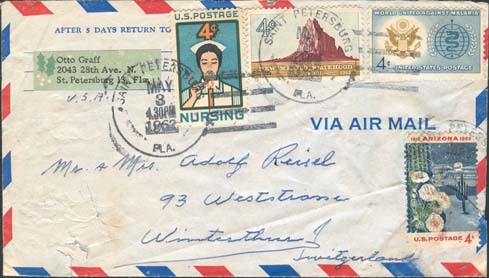 AFTER 5 DAYS RETURN TO
Otto Graff
2043 28th Ave. N.
St. Petersburg 13, Fla.
U.S.A.
U.S. POSTAGE
4¢
NURSING
SAINT PETERSBURG
MAY
3
4:30 PM
1962
FLA.
4¢
NEW MEXICO STATEHOOD
SAINT PETERSBURG
FLA.
WORLD UNITED AGAINST MALARIA
4¢
UNITED STATES POSTAGE
VIA AIR MAIL
1912 ARIZONA 1962
U.S. POSTAGE 4¢
Mr. & Mrs. Adolf Reisel
93 Weststrasse
Winterthur
Switzerland